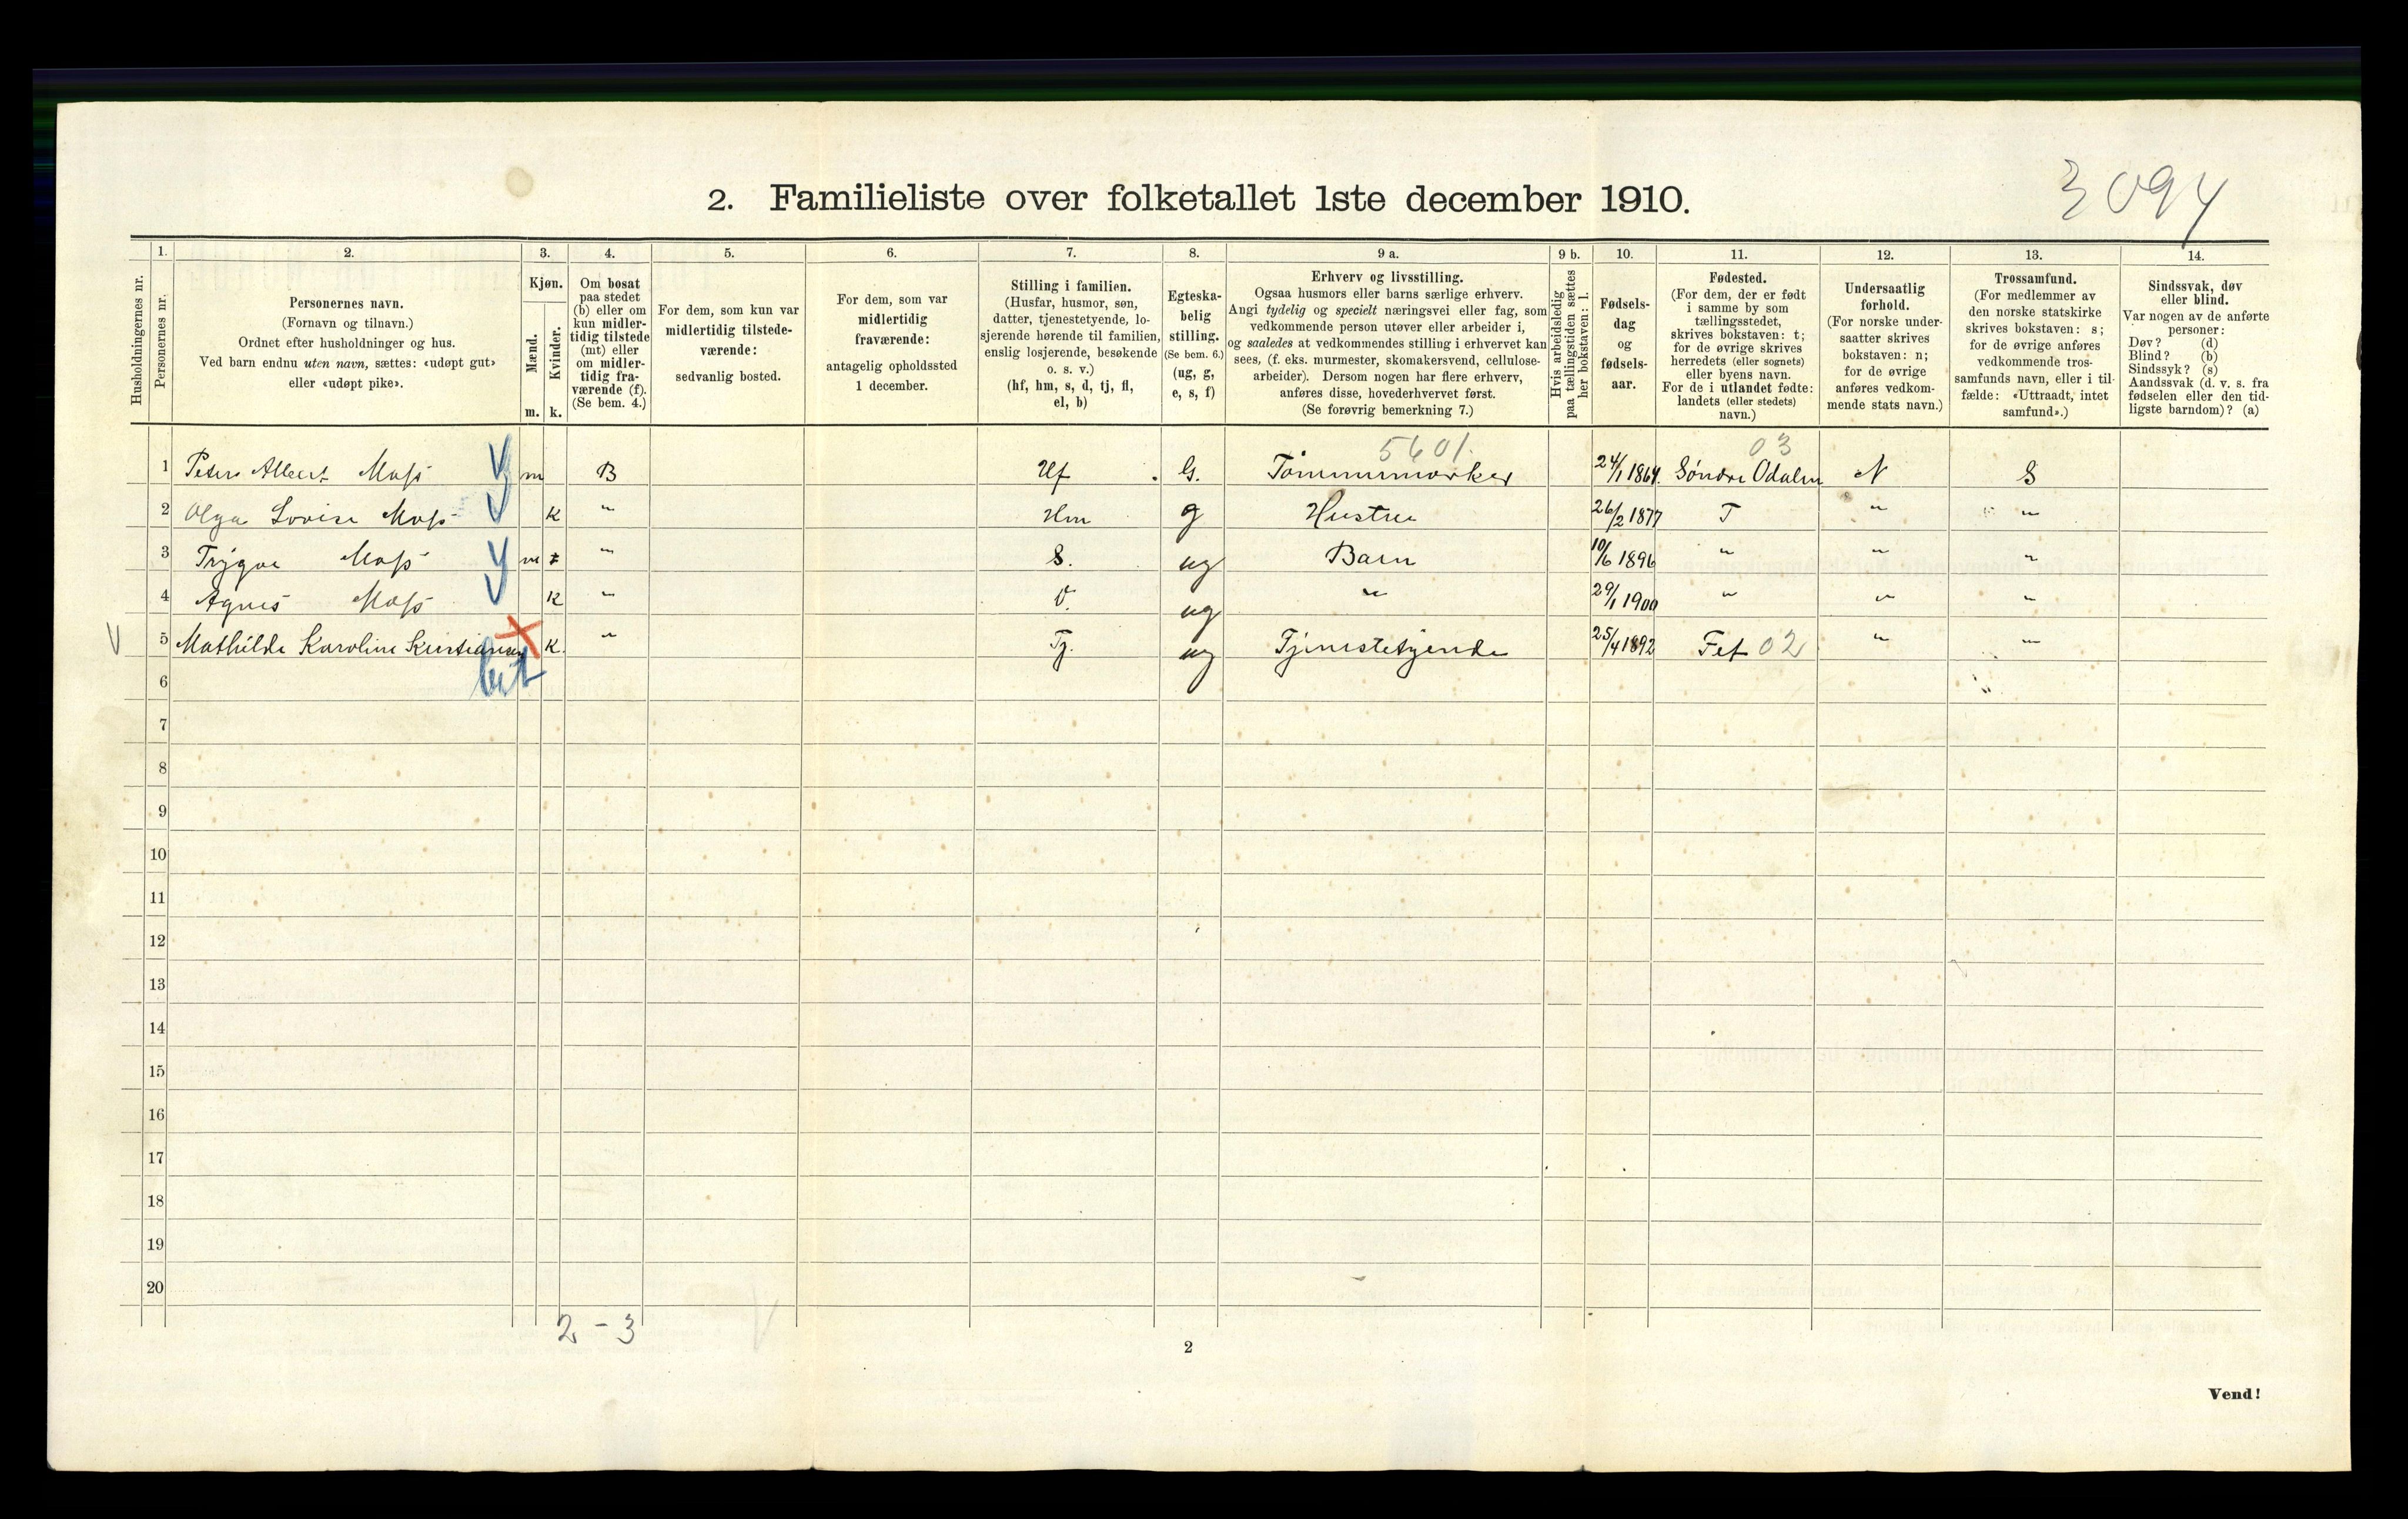 3094
2. Familieliste over folketallet 1ste december 1910.
Husholdningernes nr.
1. Personernes nr.
2. Personernes navn. (Fornavn og tilnavn.) Ordnet efter husholdninger og hus. Ved barn endnu uten navn, sættes: «udøpt gut» eller «udøpt pike».
3. Kjøn. Mænd. m. Kvinder. k.
4. Om bosat paa stedet (b) eller om kun midlertidig tilstede (mt) eller om midlertidig fraværende (f). (Se bem. 4.)
5. For dem, som kun var midlertidig tilstedeværende: sedvanlig bosted.
6. For dem, som var midlertidig fraværende: antagelig opholdssted 1 december.
7. Stilling i familien. (Husfar, husmor, søn, datter, tjenestetyende, losjerende hørende til familien, enslig losjerende, besøkende o. s. v.) (hf, hm, s, d, tj, fl, el, b)
8. Egteskabelig stilling. (Se bem. 6.) (ug, g, e, s, f)
9 a. Erhverv og livsstilling. Ogsaa husmors eller barns særlige erhverv. Angi tydelig og specielt næringsvei eller fag, som vedkommende person utøver eller arbeider i, og saaledes at vedkommendes stilling i erhvervet kan sees, (f. eks. murmester, skomakersvend, cellulosearbeider). Dersom nogen har flere erhverv, anføres disse, hovederhvervet først. (Se forøvrig bemerkning 7.)
9 b. Hvis arbeidsledig paa tællingstiden sættes her bokstaven: l.
10. Fødselsdag og fødselsaar.
11. Fødested. (For dem, der er født i samme by som tællingsstedet, skrives bokstaven: t; for de øvrige skrives herredets (eller sognets) eller byens navn. For de i utlandet fødte: landets (eller stedets) navn.)
12. Undersaatlig forhold. (For norske undersaatter skrives bokstaven: n; for de øvrige anføres vedkommende stats navn.)
13. Trossamfund. (For medlemmer av den norske statskirke skrives bokstaven: s; for de øvrige anføres vedkommende trossamfunds navn, eller i tilfælde: «Uttraadt, intet samfund».)
14. Sindssvak, døv eller blind. Var nogen av de anførte personer: Døv? (d) Blind? (b) Sindssyk? (s) Aandssvak (d. v. s. fra fødselen eller den tidligste barndom)? (a)
5601. 03
1 Peter Albert Moss m B Hf G. Tømmermerker 24/1 1864. Søndre Odalen N S
2 Olga Lovise Moss K " Hm g Hustru 26/2 1877 T " "
3 Trygve Moss m " S. ug Barn 10/6 1896 " " "
4 Agnes Moss K " D. ug " 29/1 1900 " " "
V 5 Mathilde Karoline Kristiansen K. " Tj. ug Tjenestetyende 25/4 1892 Fet 02 " "
6
7
8
9
10
11
12
13
14
15
16
17
18
19
20
2 - 3
2
Vend!